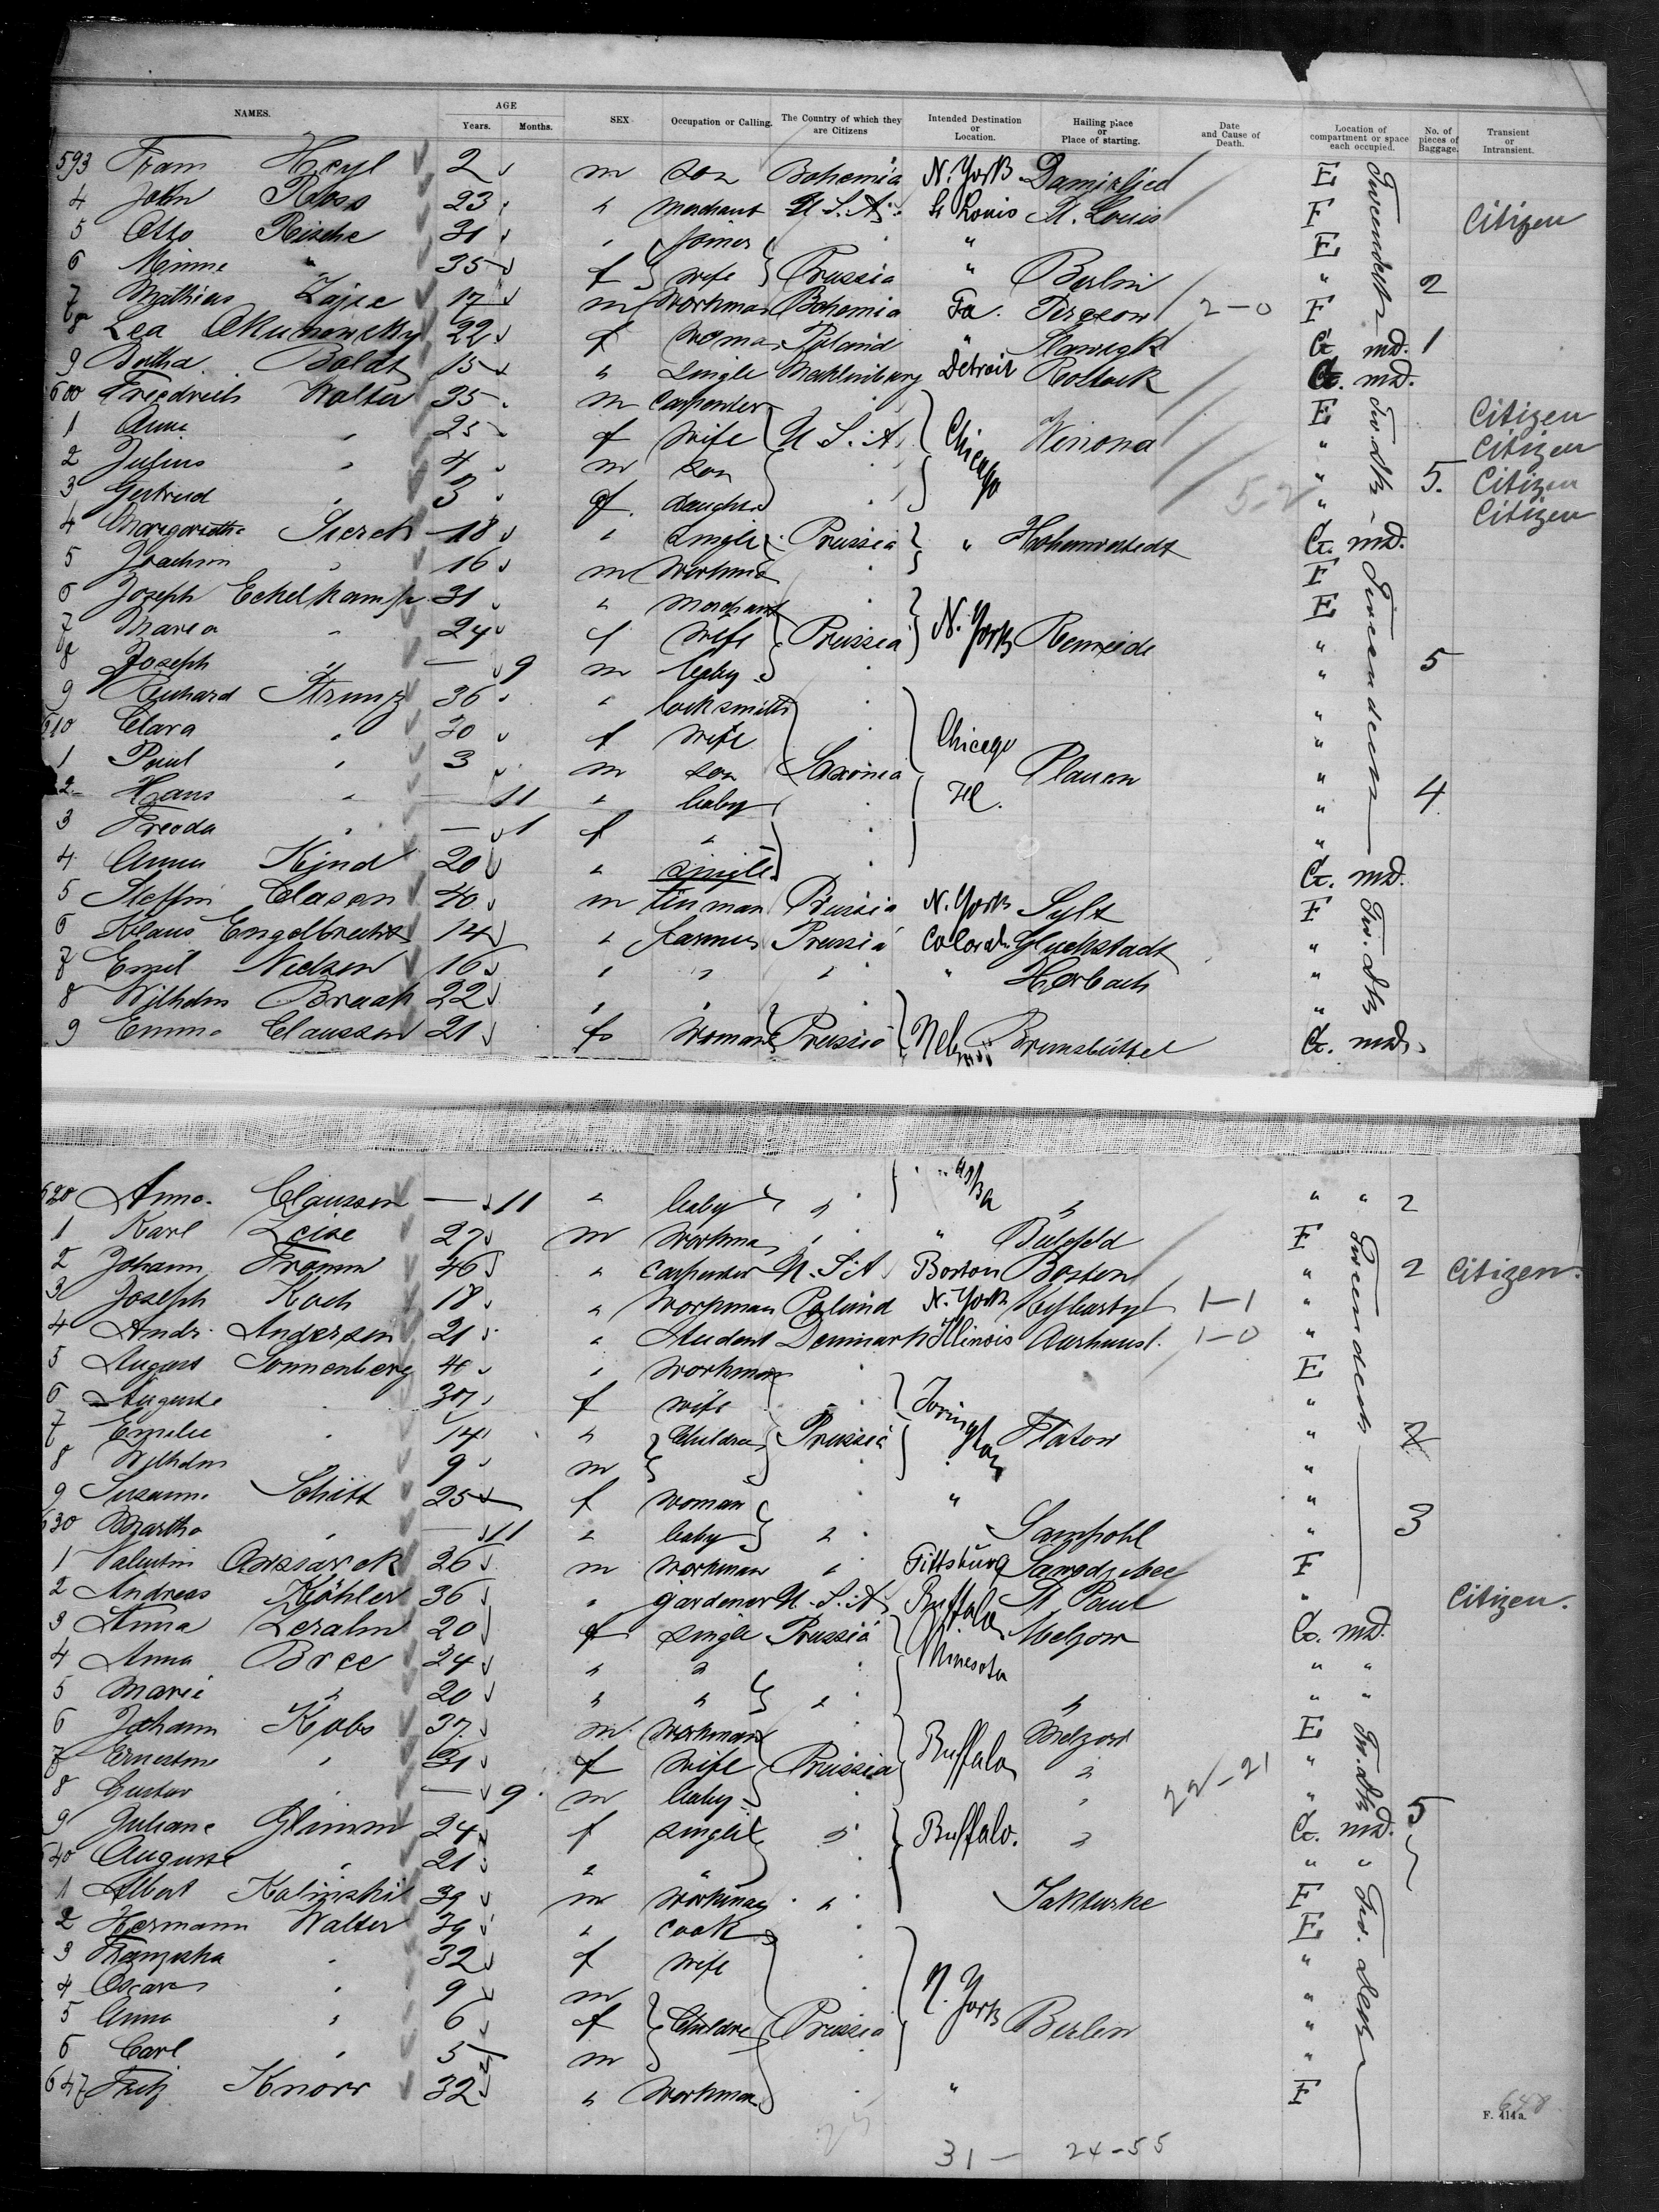 NAMES. AGE Years. Months. SEX Occupation or Calling. The Country of which they are Citizens Intended Destination or Location. Hailing place or Place of starting. Date and Cause of Death. Location of compartment or space each occupied. No. of pieces of Baggage. Transient or Intransient.
593 Heyl 2 m son Bohemia N. York E Tweendeck
4 John Ross 23 " Merchant U.S.A. St Louis St. Louis F Citizen
5 Otto Rische 31 " Joiner " E
6 Minna " 35 f wife Prussia " Berlin " 2
7 Mathias 17 m Workman Bohemia 2-0 F
8 Lea 22 f Woman Poland " G md. 1
9 Bertha Boldt 15 " Single Mecklenburg Detroit Rostock G. md.
600 Friedrich Walter 35 m Carpenter E Citizen
1 25 f Wife U.S.A. Chicago Winona " Citizen
2 Julius " 4 m son " 5. Citizen
3 Gertrud " 3 f. daughter 52 " Citizen
4 Margarethe Sierch 18 " Single Prussia " Hohenwestedt G. md.
5 Joachim " 16 m Workman F
6 Joseph Eckelkamp 31 " Merchant E
7 Maria " 24 f Wife Prussia N. York "
8 Joseph " — 9 m baby " 5
9 Richard Strunz 36 " locksmith "
610 Clara " 30 f wife Chicago "
1 Paul " 3 m son Saxonia Plauen "
2 Hans " — 11 " baby Ill. " 4
3 Freoda " — 1 f " "
4 Anna Kind 20 " single G. md.
5 Steffin Clasen 40 m tinman Prussia N. York Sylt F Tw. dk
6 Klaus Engelbrecht 14 " farmer Prussia Colorado Gluckstadt "
7 Emil Nielsen 16 " " " " "
8 Wilhelm Braak 22 " " "
9 Emma Claussen 21 f Woman Prussia Brunsbüttel G. md.
620 Anna Claussen — 11 " baby " " " " 2
1 Karl Leise 27 m Workman " " F Tweendeck
2 Johann Fromm 46 " Carpenter U.S.A. Boston Boston " 2 Citizen.
3 Joseph Koch 18 " Workman Poland N. York 1-1 "
4 Andr. Andersen 21 " Student Denmark Illinois 1-0 "
5 August Sonnenberg 41 " Workman E
6 Auguste " 37 f wife "
7 Emilie " 14 " Children Prussia Flatow "
8 Wilhelm " 9 m "
9 Susanne Schitt 25 f Woman " "
630 Martha " — 11 " baby " Sampohl " 3
1 Valentin 26 m Workman " Pittsburg F
2 Andreas Köhler 36 " gardener U.S.A. Buffalo St Paul " Citizen.
3 Anna 20 f single Prussia Melzow G. md.
4 Anna Bree 24 " " Minesota " "
5 Marie " 20 " " " " " "
6 Johann Kobs 37 m Workman Melzow E Tw. dk
7 Ernestine " 31 f Wife Prussia Buffalo " 22-21 "
8 Gustav " — 9 m baby " " 5
9 Juliane Glimm 24 f single " Buffalo. " G. md.
640 Auguste " 21 " " "
1 Albert Kalinski 39 m Workman " F Tw. deck
2 Hermann Walter 39 " cook E
3 " 32 f wife "
4 Oscar " 9 m N. York "
5 Anna " 6 f Children Prussia Berlin "
6 Carl " 5 m "
647 Fritz Knorr 32 " Workman " F
648
F. 414a.
25 31 — 24-55